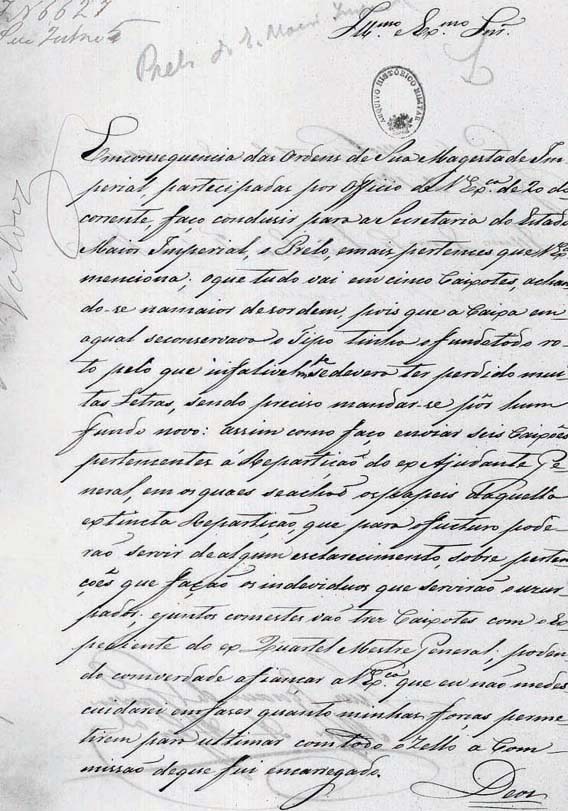 Nº 6627
Ill.mo e Ex.mo Snr.
ARQUIVO HISTÓRICO MILITAR
Emconsequencia das Ordens de Sua Magestade Im-
perial, participadas por Officio de V. Ex.ca de 20 do
corrente, faço condusir para a Secretaria do Estado
Maior Imperial, o Prélo, emais pertences que V. Ex.
menciona, oque tudo vai em cinco Caixotes, achan
do-se namaior desordem, pois que a Caixa em
aqual seconservava o Tipo tinha o fundotodo ro-
to pelo que infalivelm.te sedeverá ter perdido mui-
tas Letras, sendo preciso mandar-se pôr hum
fundo novo: assim como faço enviar seis Caixões
pertencentes á Repartição do ex Ajudante Ge-
neral, em os quaes seachão ospapeis daquella
extincta Repartição, que para ofucturo pode
rão servir dealgum esclarecimento, sobre perten
ções que fação os individuos que servirão ouzur-
pador, ejuntos comestes vaõ trez Caixotes com o Ex
pediente do ex Quartel Mestre General; poden-
do comverdade afiançar a V. Ex.ca que eu não medes
cuidarei emfaser quanto minhas forças perme-
tirem para ultimar com todo o Zello a Com-
missão deque fui encarregado.
Deos